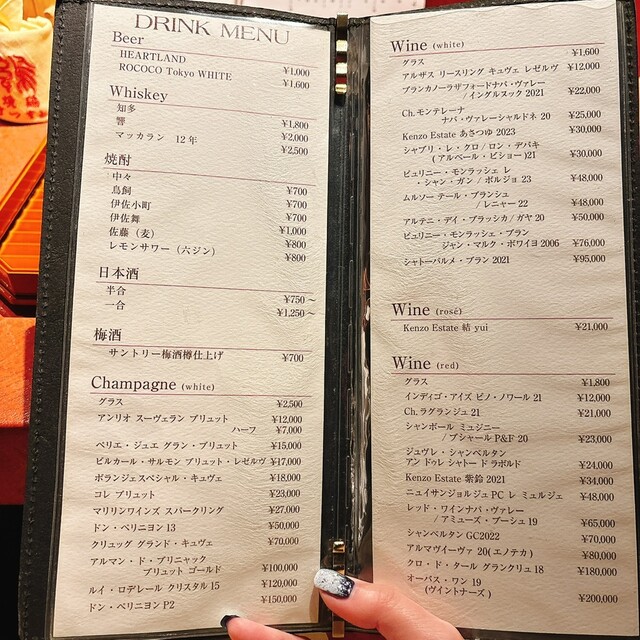 DRINK MENU
Beer
HEARTLAND ¥1,000
ROCOCO Tokyo WHITE ¥1,600
Whiskey
知多 ¥1,800
響 ¥2,000
マッカラン 12年 ¥2,500
焼酎
中々 ¥700
鳥飼 ¥700
伊佐小町 ¥700
伊佐舞 ¥1,000
佐藤(麦) ¥800
レモンサワー(六ジン) ¥800
日本酒
半合 ¥750~
一合 ¥1,250~
梅酒
サントリー梅酒樽仕上げ ¥700
Champagne (white)
グラス ¥2,500
アンリオ スーヴェラン ブリュット ¥12,000
ハーフ ¥7,000
ペリエ・ジュエ グラン・ブリュット ¥15,000
ビルカール・サルモン ブリュット・レゼルヴ ¥17,000
ボランジェスペシャル・キュヴェ ¥18,000
コレ ブリュット ¥23,000
マリリンワインズ スパークリング ¥27,000
ドン・ペリニヨン 13 ¥50,000
クリュッグ グランド・キュヴェ ¥70,000
アルマン・ド・ブリニャック
ブリュット ゴールド ¥100,000
ルイ・ロデレール クリスタル 15 ¥120,000
ドン・ペリニヨン P2 ¥150,000
Wine (white)
グラス ¥1,600
アルザス リースリング キュヴェ レゼルヴ ¥12,000
ブランカノーラザフォードナパ・ヴァレー
/イングルヌック 2021 ¥22,000
Ch.モンテレーナ
ナパ・ヴァレーシャルドネ 20 ¥25,000
Kenzo Estate あさつゆ 2023 ¥30,000
シャブリ・レ・クロ/ロン・デパキ
(アルベール・ビショー)21 ¥30,000
ピュリニー・モンラッシェ レ
・シャン・ガン/ボルジョ 23 ¥48,000
ムルソー テール・ブランシュ
/レニャー 22 ¥48,000
アルテニ・デイ・ブラッシカ/ガヤ 20 ¥50,000
ピュリニー・モンラッシェ・ブラン
ジャン・マルク・ボワイヨ 2006 ¥76,000
シャトーパルメ・ブラン 2021 ¥95,000
Wine (rosé)
Kenzo Estate 結 yui ¥21,000
Wine (red)
グラス ¥1,800
インディゴ・アイズ ピノ・ノワール 21 ¥12,000
Ch.ラグランジュ 21 ¥21,000
シャンボール ミュジニー
/プシャールP&F 20 ¥23,000
ジュヴレ・シャンベルタン
アン ドゥレ シャトー ド ラボルド ¥24,000
Kenzo Estate 紫鈴 2021 ¥34,000
ニュイサンジョルジュPC レ ミュルジェ ¥48,000
レッド・ワインナパ・ヴァレー
/アミューズ・ブーシュ 19 ¥65,000
シャンベルタン GC2022 ¥70,000
アルマヴイーヴァ 20(エノテカ) ¥80,000
クロ・ド・タール グランクリュ 18 ¥180,000
オーパス・ワン 19
(ヴイントナーズ) ¥200,000